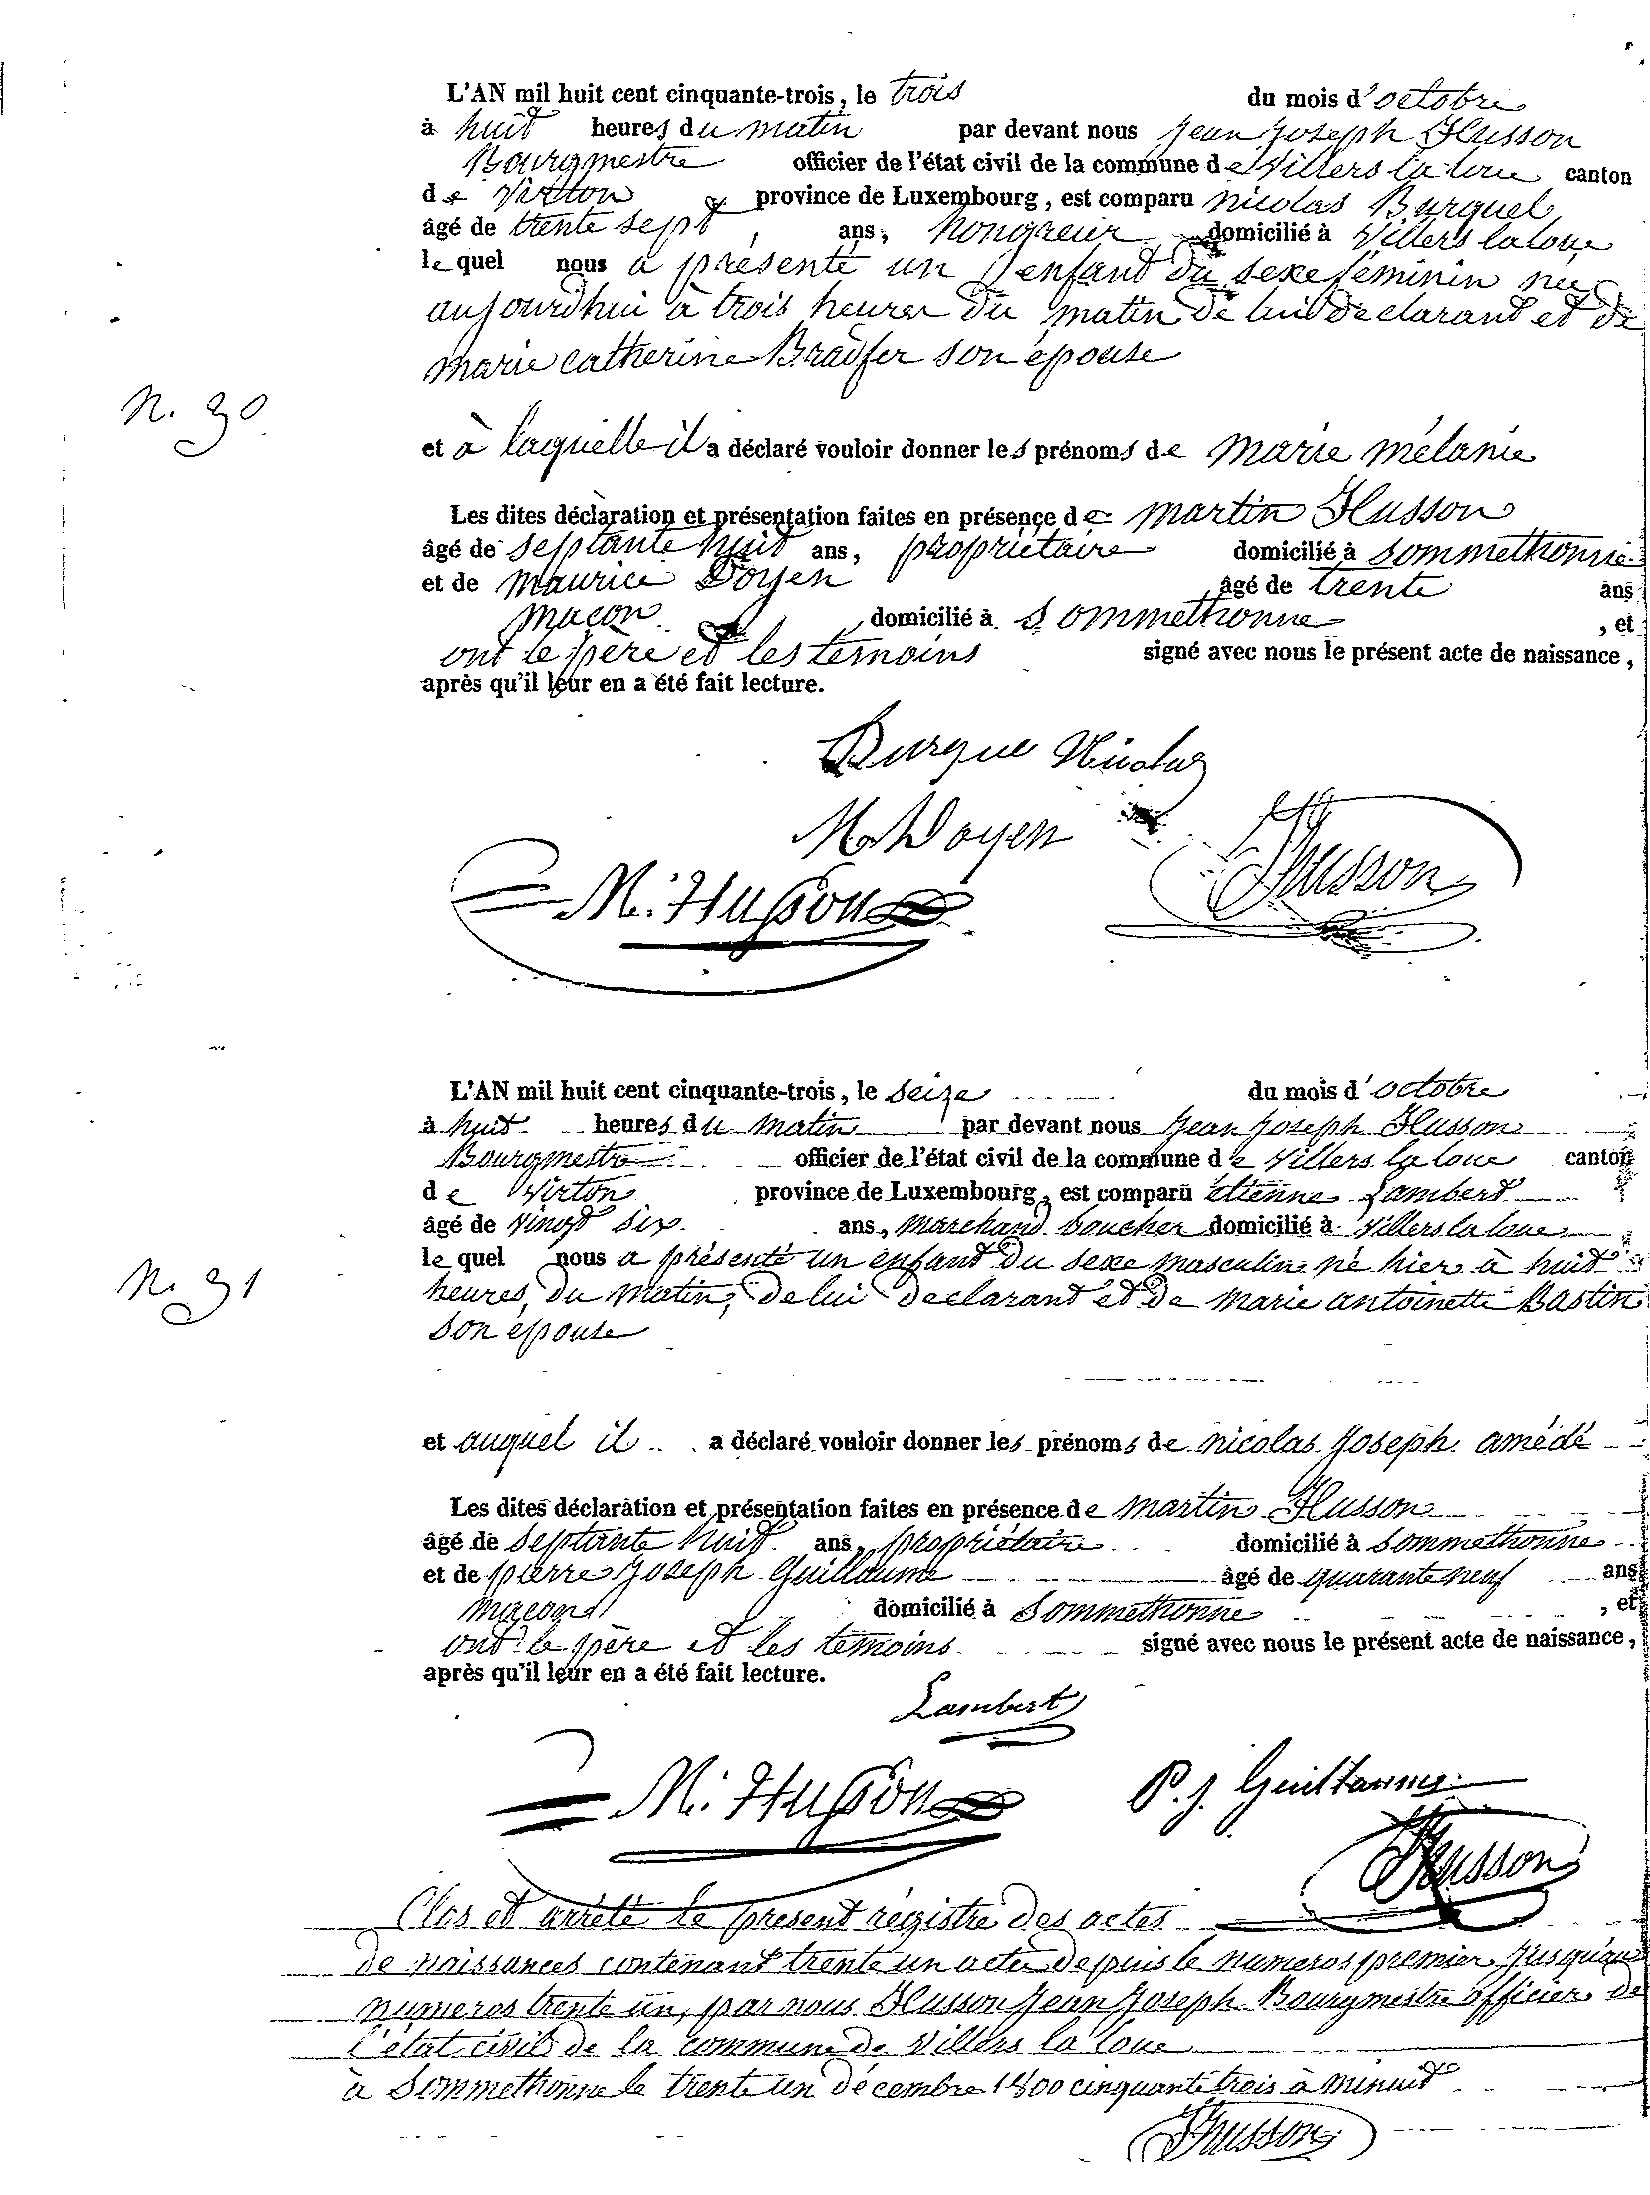 L'AN mil huit cent cinquante-trois, le trois du mois d'octobre
à huit heures du matin par devant nous Jean Joseph Husson
Bourgmestre officier de l'état civil de la commune de Villers la loue canton
de Virton province de Luxembourg, est comparu nicolas Burquel
âgé de trente sept ans, hongreur domicilié à Villers la loue
le quel nous a présenté un enfant du sexe féminin née
aujourdhui à trois heures du matin de lui déclarant et de
marie catherine Bradfer son épouse
N. 30
et à laquelle il a déclaré vouloir donner les prénoms de marie mélanie
Les dites déclaration et présentation faites en présence de martin Husson
âgé de septante huit ans, propriétaire domicilié à sommethonne
et de maurice Doyen âgé de trente ans
maçon domicilié à Sommethonne, et
ont le père et les témoins signé avec nous le présent acte de naissance,
après qu'il leur en a été fait lecture.
Burque Nicolas
M. Doyen
M. Husson Husson
L'AN mil huit cent cinquante-trois, le seize du mois d'octobre
à huit heures du matin par devant nous Jean Joseph Husson
Bourgmestre officier de l'état civil de la commune de Villers la loue canton
de Virton province de Luxembourg, est comparu Etienne Lambert
âgé de vingt six ans, marchand boucher domicilié à Villers la loue
le quel nous a présenté un enfant du sexe masculin né hier à huit
N. 31
heures du matin, de lui déclarant et de marie antoinette Bastin
son épouse
et auquel il a déclaré vouloir donner les prénoms de nicolas Joseph amédé
Les dites déclaration et présentation faites en présence de martin Husson
âgé de septante huit ans, propriétaire domicilié à Sommethonne
et de pierre Joseph Guillaume âgé de quarante neuf ans
maçon domicilié à Sommethonne, et
ont le père et les témoins signé avec nous le présent acte de naissance,
après qu'il leur en a été fait lecture.
Lambert
M. Husson P. J. Guillaume
Husson
Clos et arrêté le présent régistre des actes
de naissances contenant trente un actes depuis le numeros premier jusqu'au
numeros trente un, par nous Husson Jean Joseph Bourgmestre officier de
l'état civil de la commune de Villers la loue
à Sommethonne le trente un décembre 1800 cinquante trois à minuit
Husson